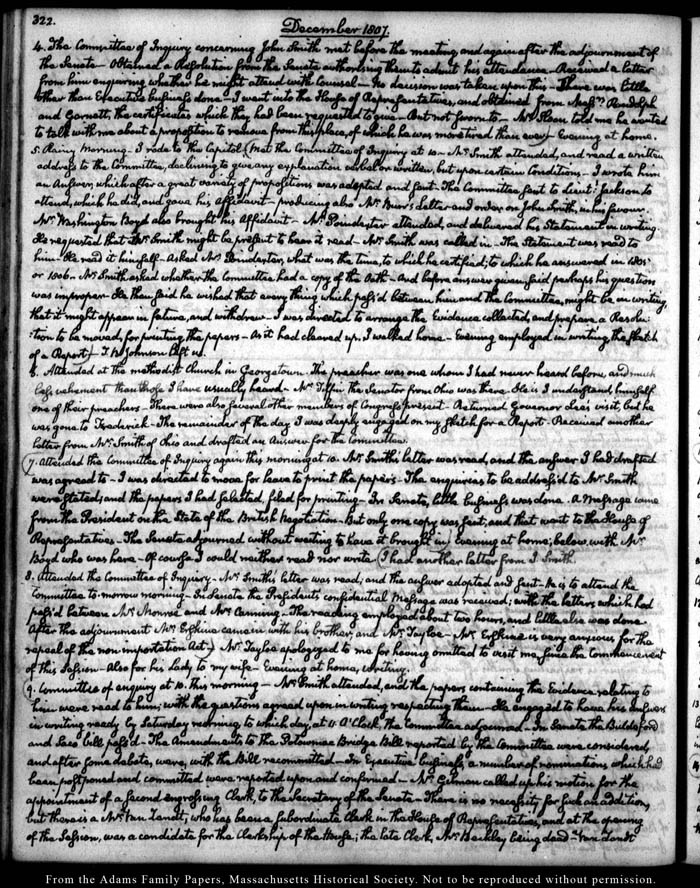 322.
December 1807.
4. The Committee of Inquiry concerning John Smith met before the meeting, and again after the adjournment of
the Senate – Obtained a Resolution from the Senate authorising them to admit his attendance – Received a letter
from him enquiring whether he might attend with Counsel – No decision was taken upon this – There was little
other than Executive business done – I went into the House of Representatives, and obtained from Messrs Randolph
and Garnett, the certificates which they had been requested to give – But not sworn to – Mr
told me he wanted
to talk with me about a proposition to remove from this place, of which he was more tired than ever) Evening at home.
5. Rainy Morning – I rode to the Capitol (Met the Committee of Inquiry at 10 – Mr Smith attended, and read a written
address to the Committee, declining to give any explanation verbal or written, but upon certain Conditions – I wrote him
an Answer, which after a great variety of propositions was adopted and sent. The Committee sent to Lieut: Jackson to
attend, which he did, and gave his Affidavit – producing also Mr Burr's Letter and order on John Smith, in his favour.
Mr Washington Boyd also brought his Affidavit – Mr Poindexter attended, and delivered his Statement in writing.
He requested that Mr Smith might be present to hear it read – Mr Smith was called in – The Statement was read to
him – He read it himself – Asked Mr Poindexter, what was the time, to which he certified; to which he answered in 1805
or 1806 – Mr Smith asked whether the Committee had a copy of the Oath – And before answer given said perhaps his question
was improper – He then said he wished that every thing which pass'd between him and the Committee, might be in writing,
that it might appear in future, and withdrew – I was directed to arrange the Evidence collected, and prepare a Resolu-
tion to be moved, for printing the papers – As it had cleared up, I walked home – Evening employed in writing, the sketch
of a Report) T. B. Johnson left us.
6. Attended at the methodist Church in Georgetown. The preacher was one whom I had never heard before, and much
less vehement than those I have usually heard – Mr Tiffin the Senator from Ohio was there. He is I understand, himself
one of their preachers – There were also several other members of Congress present – Returned Governor Lee's visit, but he
was gone to Frederick – The remainder of the day I was deeply engaged on my sketch for a Report – Received another
letter from Mr Smith of Ohio and drafted an Answer for the Committee.
(7. Attended the Committee of Inquiry again this morning at 10. Mr Smith's letter was read, and the answer I had drafted
was agreed to – I was directed to move for leave to print the papers – The enquiries to be address'd to Mr Smith
were stated; and the papers I had selected, filed for printing – In Senate, little business was done. A Message came
from the President on the State of the British Negotiation – But only one copy was sent, and that went to the House of
Representatives – The Senate adjourned without waiting to have it brought in) Evening at home; below, with Mr
Boyd who was here – Of course I could neither read nor write. (I had another letter from J. Smith.
8. Attended the Committee of Inquiry – Mr Smith's letter was read; and the answer adopted and sent – He is to attend the
Committee to-morrow morning – In Senate the President's confidential Message was received; with the letters which had
pass'd between Mr Monroe and Mr Canning – The reading employed about two hours, and little else was done.
After the adjournment Mr Erskine came in with his brother, and Mr Tayloe – Mr Erskine is very anxious for the
repeal of the non importation Act) Mr Tayloe apologized to me for having omitted to visit me, since the Commencement
of this Session – Also for his Lady to my wife – Evening at home, writing.
(9. Committee of enquiry at 10. this morning – Mr Smith attended, and the papers containing the Evidence relating to
him were read to him; with the questions agreed upon in writing respecting them – He engaged to have his answers
in writing ready by Saturday morning, to which day, at 11 O'Clock, the Committee adjourned – In Senate the Biddeford
and Saco bill pass'd – The Amendments to the Potowmac Bridge Bill reported by the Committee were considered,
and after some debate, were, with the Bill recommitted – In Executive business, a number of nominations, which had
been postponed and committed were reported upon and confirmed – Mr Gilman called up his motion for the
appointment of a second engrossing Clerk, to the Secretary of the Senate – There is no necessity for such an addition,
but there is a Mr Van Zandt, who has been a subordinate Clerk in the House of Representatives, and at the opening
of the Session, was a candidate for the Clerkship of the House; the late Clerk, Mr Beckley being dead – Van Zandt
From the Adams Family Papers, Massachusetts Historical Society. Not to be reproduced without permission.